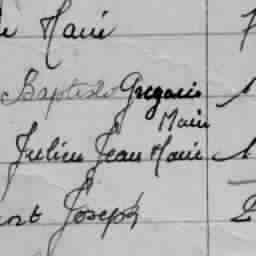 Marie
Baptiste Gregoire
Marie
Julien Jean Marie
Joseph